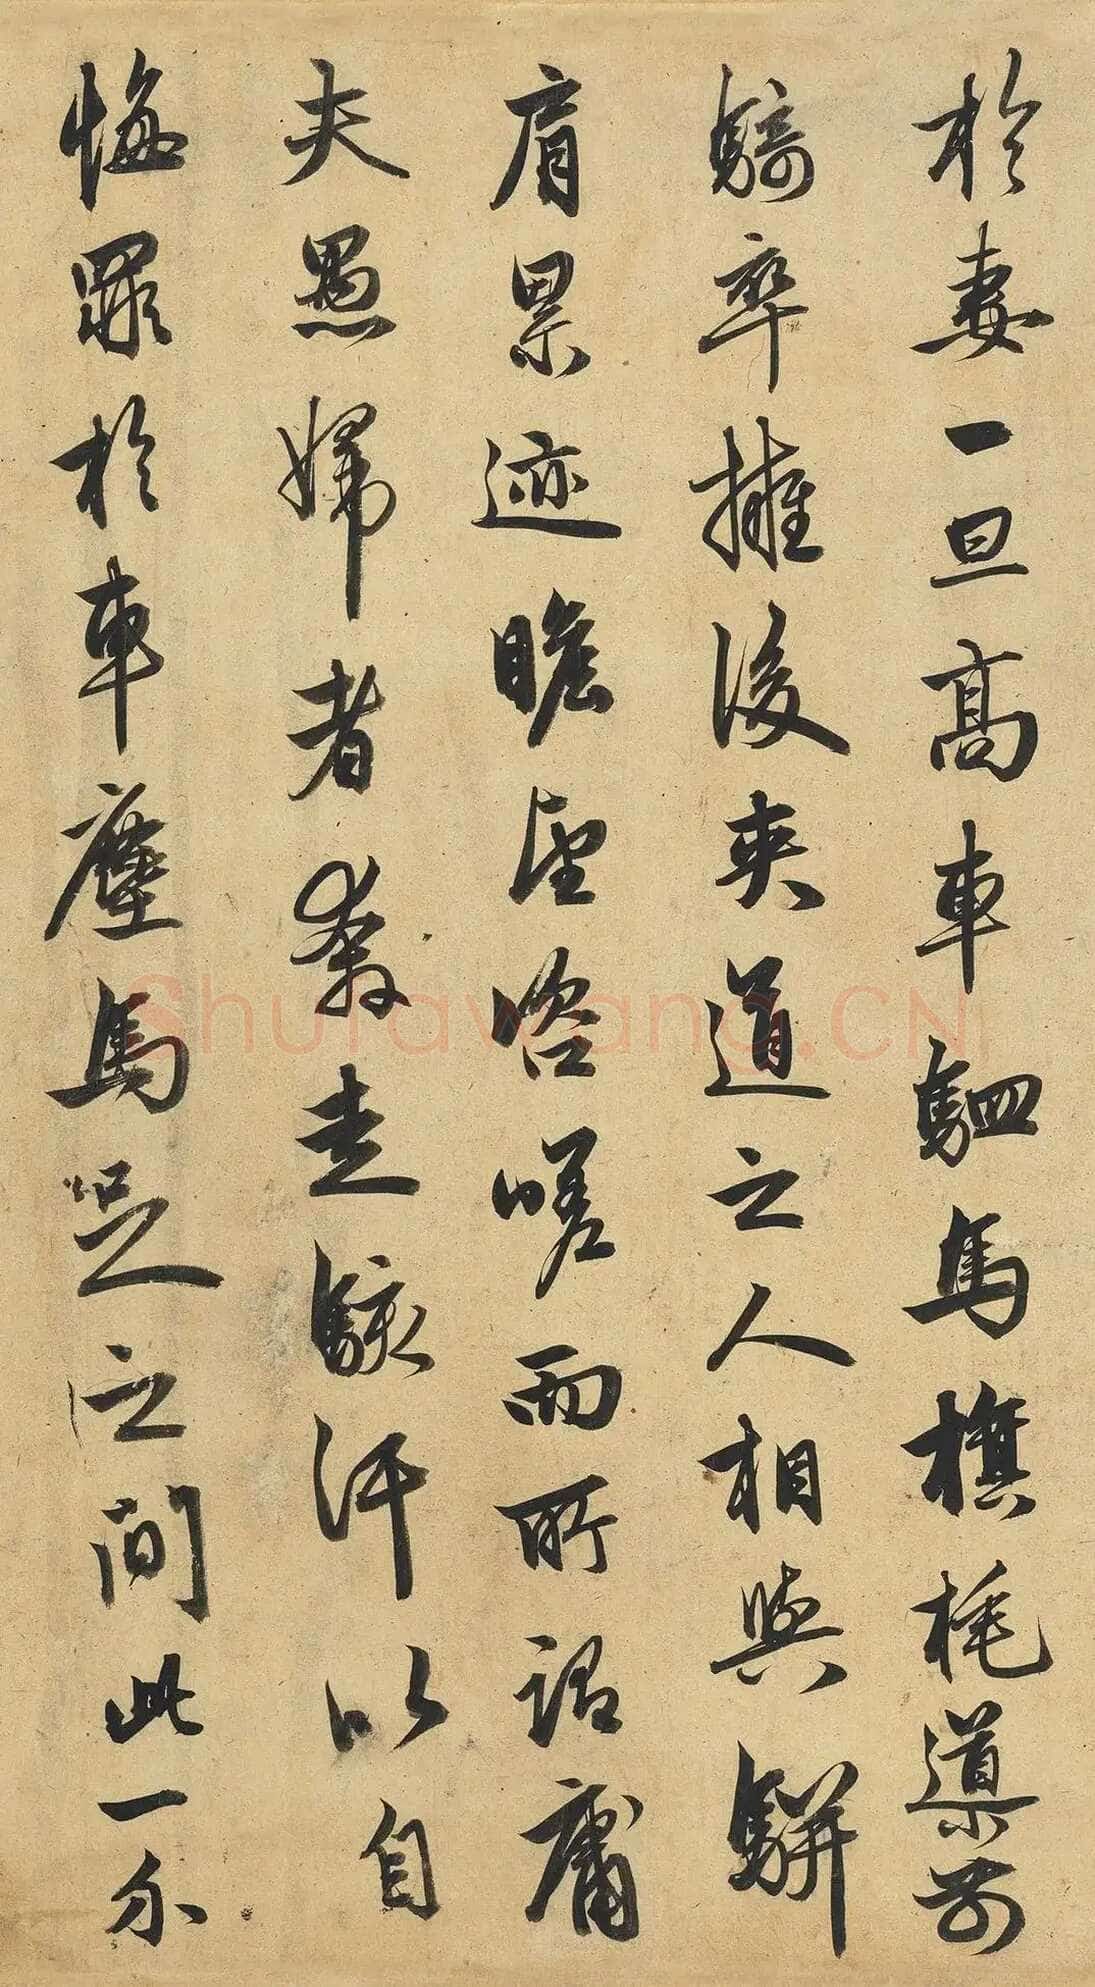 於妻一旦高車駟馬旗旄導前
騎卒擁後夾道之人相與駢
肩累迹瞻望咨嗟而所謂庸
夫愚婦者奔走駭汗以自
悔罪於車塵馬足之間此一介
Shufawang.CN